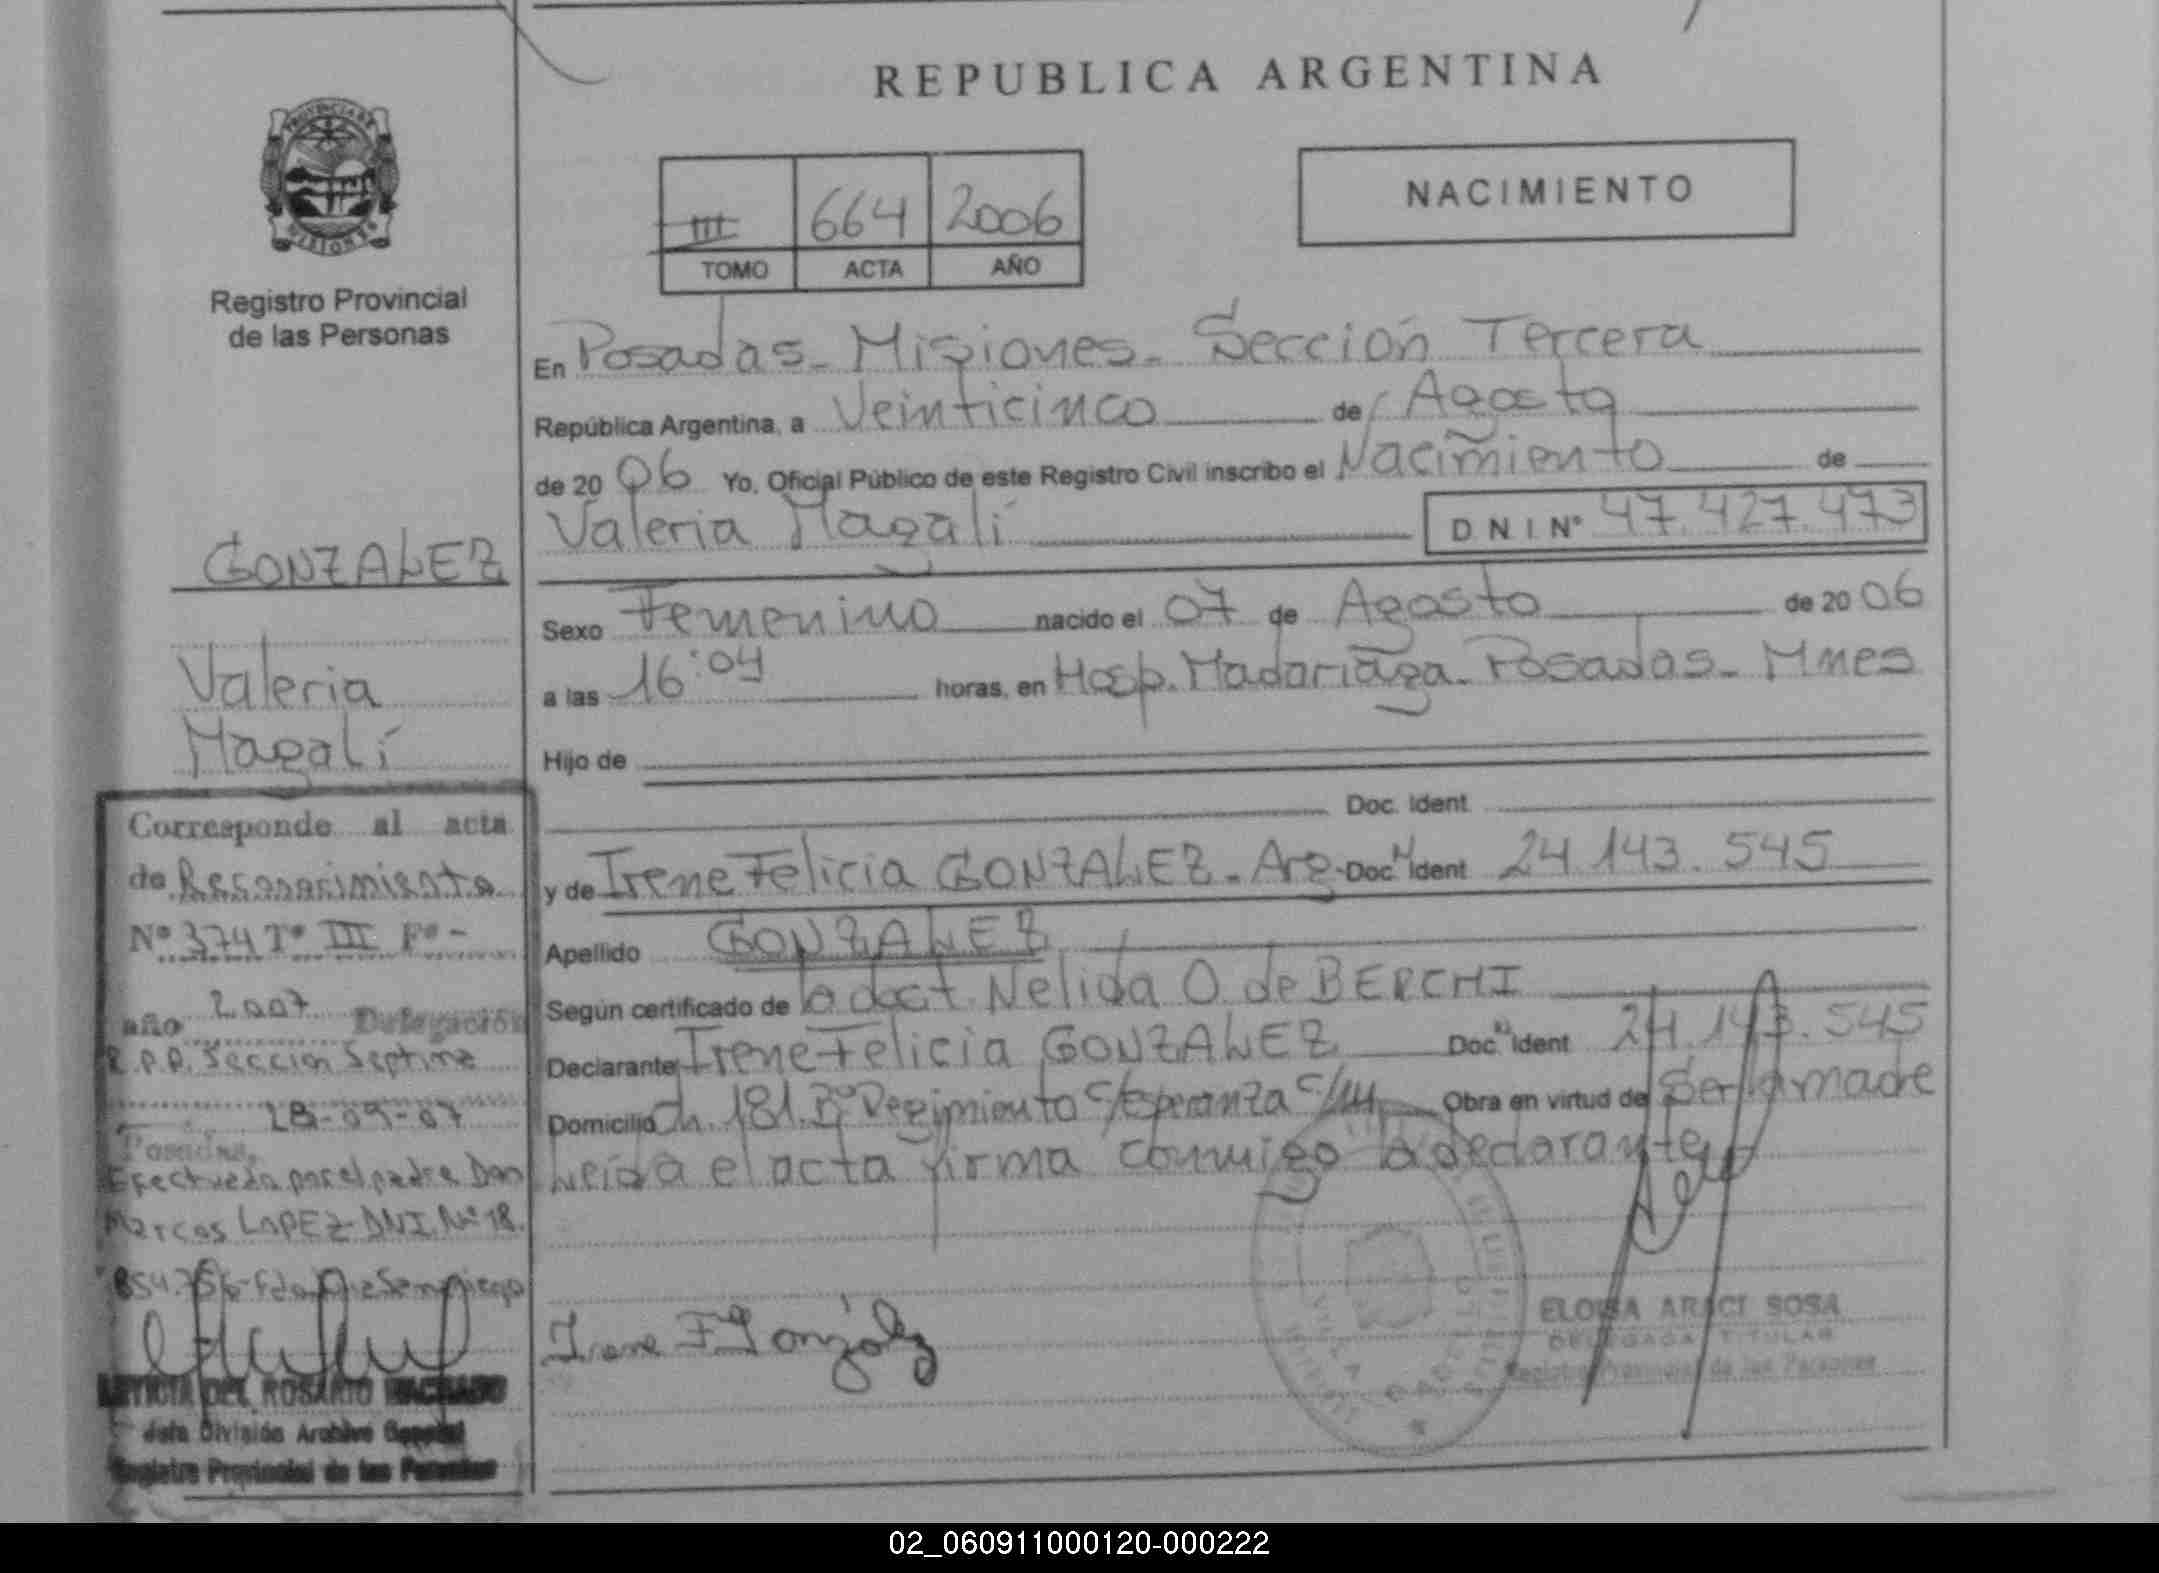 REPUBLICA ARGENTINA
PROVINCIA DE
MISIONES
Registro Provincial
de las Personas
III 664 2006
TOMO ACTA AÑO
NACIMIENTO
En Posadas - Misiones - Sección Tercera
República Argentina, a Veinticinco de Agosto
de 20 06 Yo, Oficial Público de este Registro Civil inscribo el Nacimiento de
Valeria Magalí D N I Nº 47.427.473
GONZALEZ
Valeria
Magalí
Sexo Femenino nacido el 07 de Agosto de 20 06
a las 16:04 horas, en Hosp. Madariaga - Posadas - Mnes
Hijo de
Doc. Ident
y de Irene Felicia GONZALEZ - Arg - Doc. Ident 24.143.545
Apellido GONZALEZ
Según certificado de la doct. Nelida O. de BERCHI
Declarante Irene Felicia GONZALEZ Doc. Ident 24.143.545
Domicilio Ch. 181. Bº Regimiento C/Esperanza C/14 Obra en virtud de Ser la madre
Leída el acta firma conmigo la declarante
Corresponde al acta
de Reconocimiento
Nº 374 Tº III Fº -
año 2007 Delegación
R.P.P. Sección Septima
Posadas, 28-09-07
Efectuada por el padre Don
Marcos LOPEZ - DNI. Nº 18.
854.756
Irene F. González
ELOISA ARACI SOSA
DELEGADA TITULAR
Registro Provincial de las Personas
LETICIA DEL ROSARIO MACHADO
Jefa División Archivo General
Registro Provincial de las Personas
02_060911000120-000222